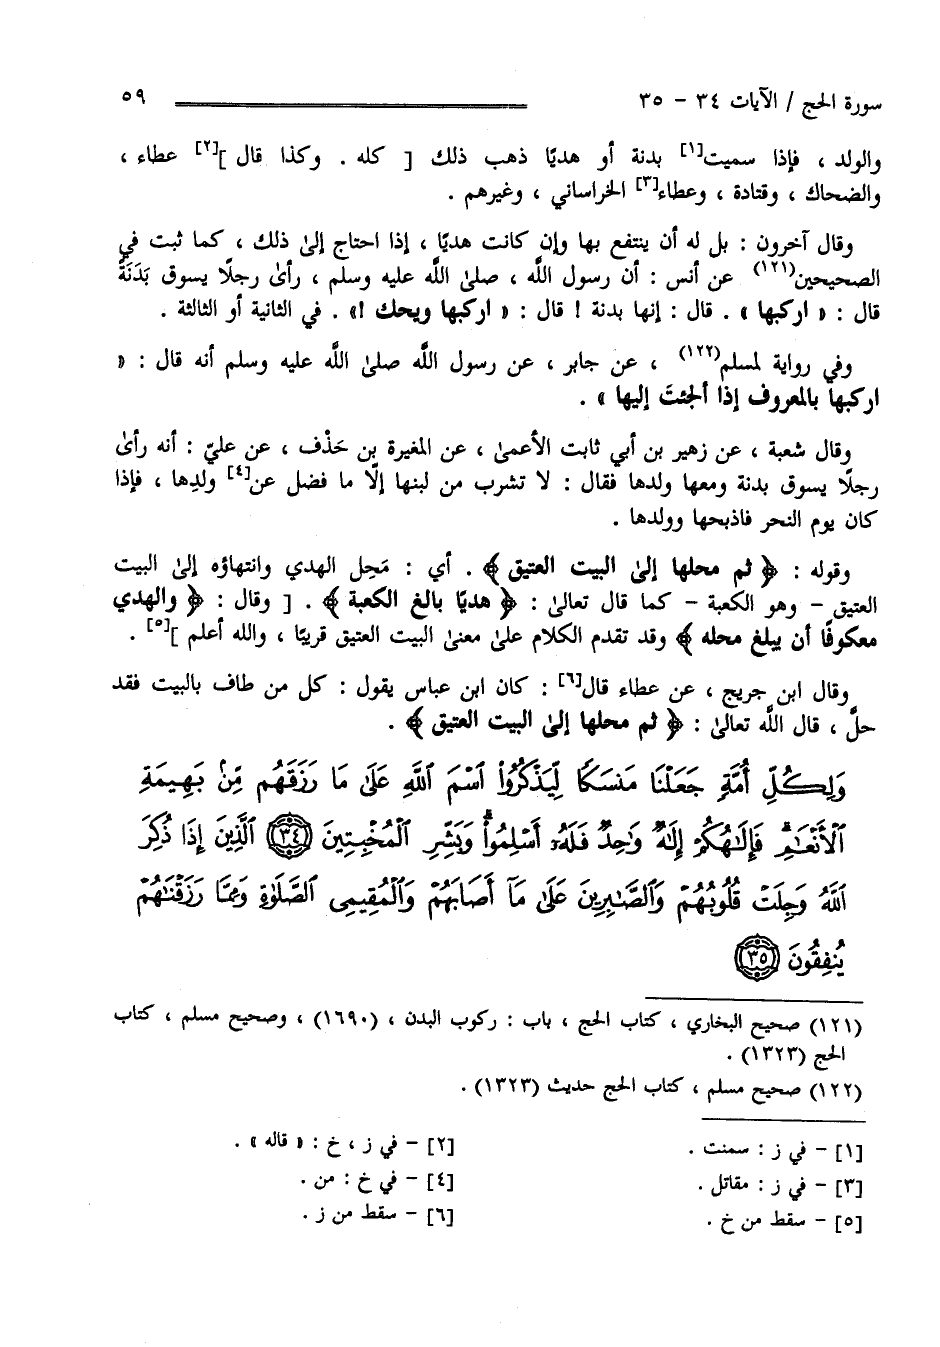 سورة الحج / الآيات ٣٤ - ٣٥ ٥٩
والولد ، فإذا سميت[١] بدنة أو هديًا ذهب ذلك [ كله . وكذا قال ][٢] عطاء ،
والضحاك ، وقتادة ، وعطاء[٣] الخراساني ، وغيرهم .
وقال آخرون : بل له أن ينتفع بها وإن كانت هديًا ، إذا احتاج إلىٰ ذلك ، كما ثبت في
الصحيحين(١٢١) عن أنس : أن رسول اللَّه ، صلىٰ اللَّه عليه وسلم ، رأىٰ رجلًا يسوق بَدَنَةً
قال : « اركبها » . قال : إنها بدنة ! قال : « اركبها ويحك !» . في الثانية أو الثالثة .
وفي رواية لمسلم(١٢٢) ، عن جابر ، عن رسول اللَّه صلىٰ اللَّه عليه وسلم أنه قال : «
اركبها بالمعروف إذا ألجئتَ إليها » .
وقال شعبة ، عن زهير بن أبي ثابت الأعمىٰ ، عن المغيرة بن حَذْف ، عن عليّ : أنه رأىٰ
رجلًا يسوق بدنة ومعها ولدها فقال : لا تشرب من لبنها إلَّا ما فضل عن[٤] ولدِها ، فإذا
كان يوم النحر فاذبحها وولدها .
وقوله : ﴿ ثم محلها إلىٰ البيت العتيق ﴾ . أي : مَحِل الهدي وانتهاؤه إلىٰ البيت
العتيق - وهو الكعبة - كما قال تعالىٰ : ﴿ هديًا بالغ الكعبة ﴾ . [ وقال : ﴿ والهدي
معكوفًا أن يبلغ محله ﴾ وقد تقدم الكلام علىٰ معنىٰ البيت العتيق قريبًا ، والله أعلم ][٥] .
وقال ابن جريج ، عن عطاء قال[٦] : كان ابن عباس يقول : كل من طاف بالبيت فقد
حلَّ ، قال اللَّه تعالىٰ : ﴿ ثم محلها إلىٰ البيت العتيق ﴾ .
وَلِكُلِّ أُمَّةٍ جَعَلْنَا مَنسَكًا لِّيَذْكُرُوا۟ ٱسْمَ ٱللَّهِ عَلَىٰ مَا رَزَقَهُم مِّنۢ بَهِيمَةِ
ٱلْأَنْعَـٰمِ ۗ فَإِلَـٰهُكُمْ إِلَـٰهٌ وَٰحِدٌ فَلَهُۥٓ أَسْلِمُوا۟ ۗ وَبَشِّرِ ٱلْمُخْبِتِينَ ﴿٣٤﴾ ٱلَّذِينَ إِذَا ذُكِرَ
ٱللَّهُ وَجِلَتْ قُلُوبُهُمْ وَٱلصَّـٰبِرِينَ عَلَىٰ مَآ أَصَابَهُمْ وَٱلْمُقِيمِى ٱلصَّلَوٰةِ وَمِمَّا رَزَقْنَـٰهُمْ
يُنفِقُونَ ﴿٣٥﴾
(١٢١) صحيح البخاري ، كتاب الحج ، باب : ركوب البدن ، (١٦٩٠) ، وصحيح مسلم ، كتاب
الحج (١٣٢٣) .
(١٢٢) صحيح مسلم ، كتاب الحج حديث (١٣٢٣) .
[١] - في ز : سمنت . [٢] - في ز ، خ : « قاله » .
[٣] - في ز : مقاتل . [٤] - في خ : من .
[٥] - سقط من خ . [٦] - سقط من ز .